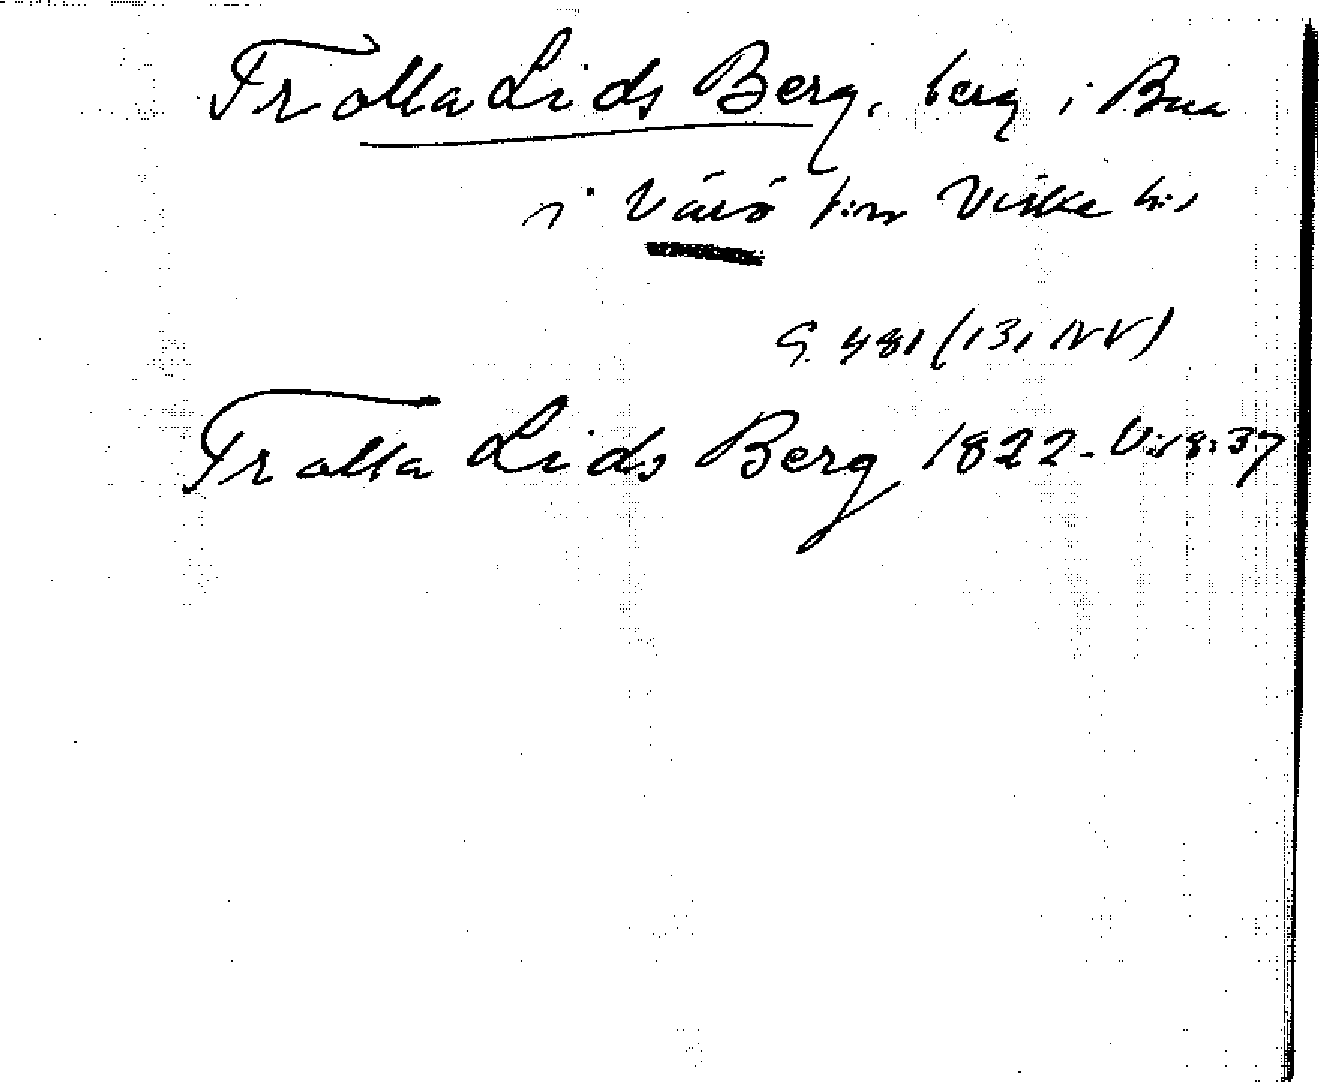 Tralla Lids Berg, berg i Bua
i Värö sn Viske hd
G. 481 (131 NV)
Tralla Lids Berg 1822-Vir8:37